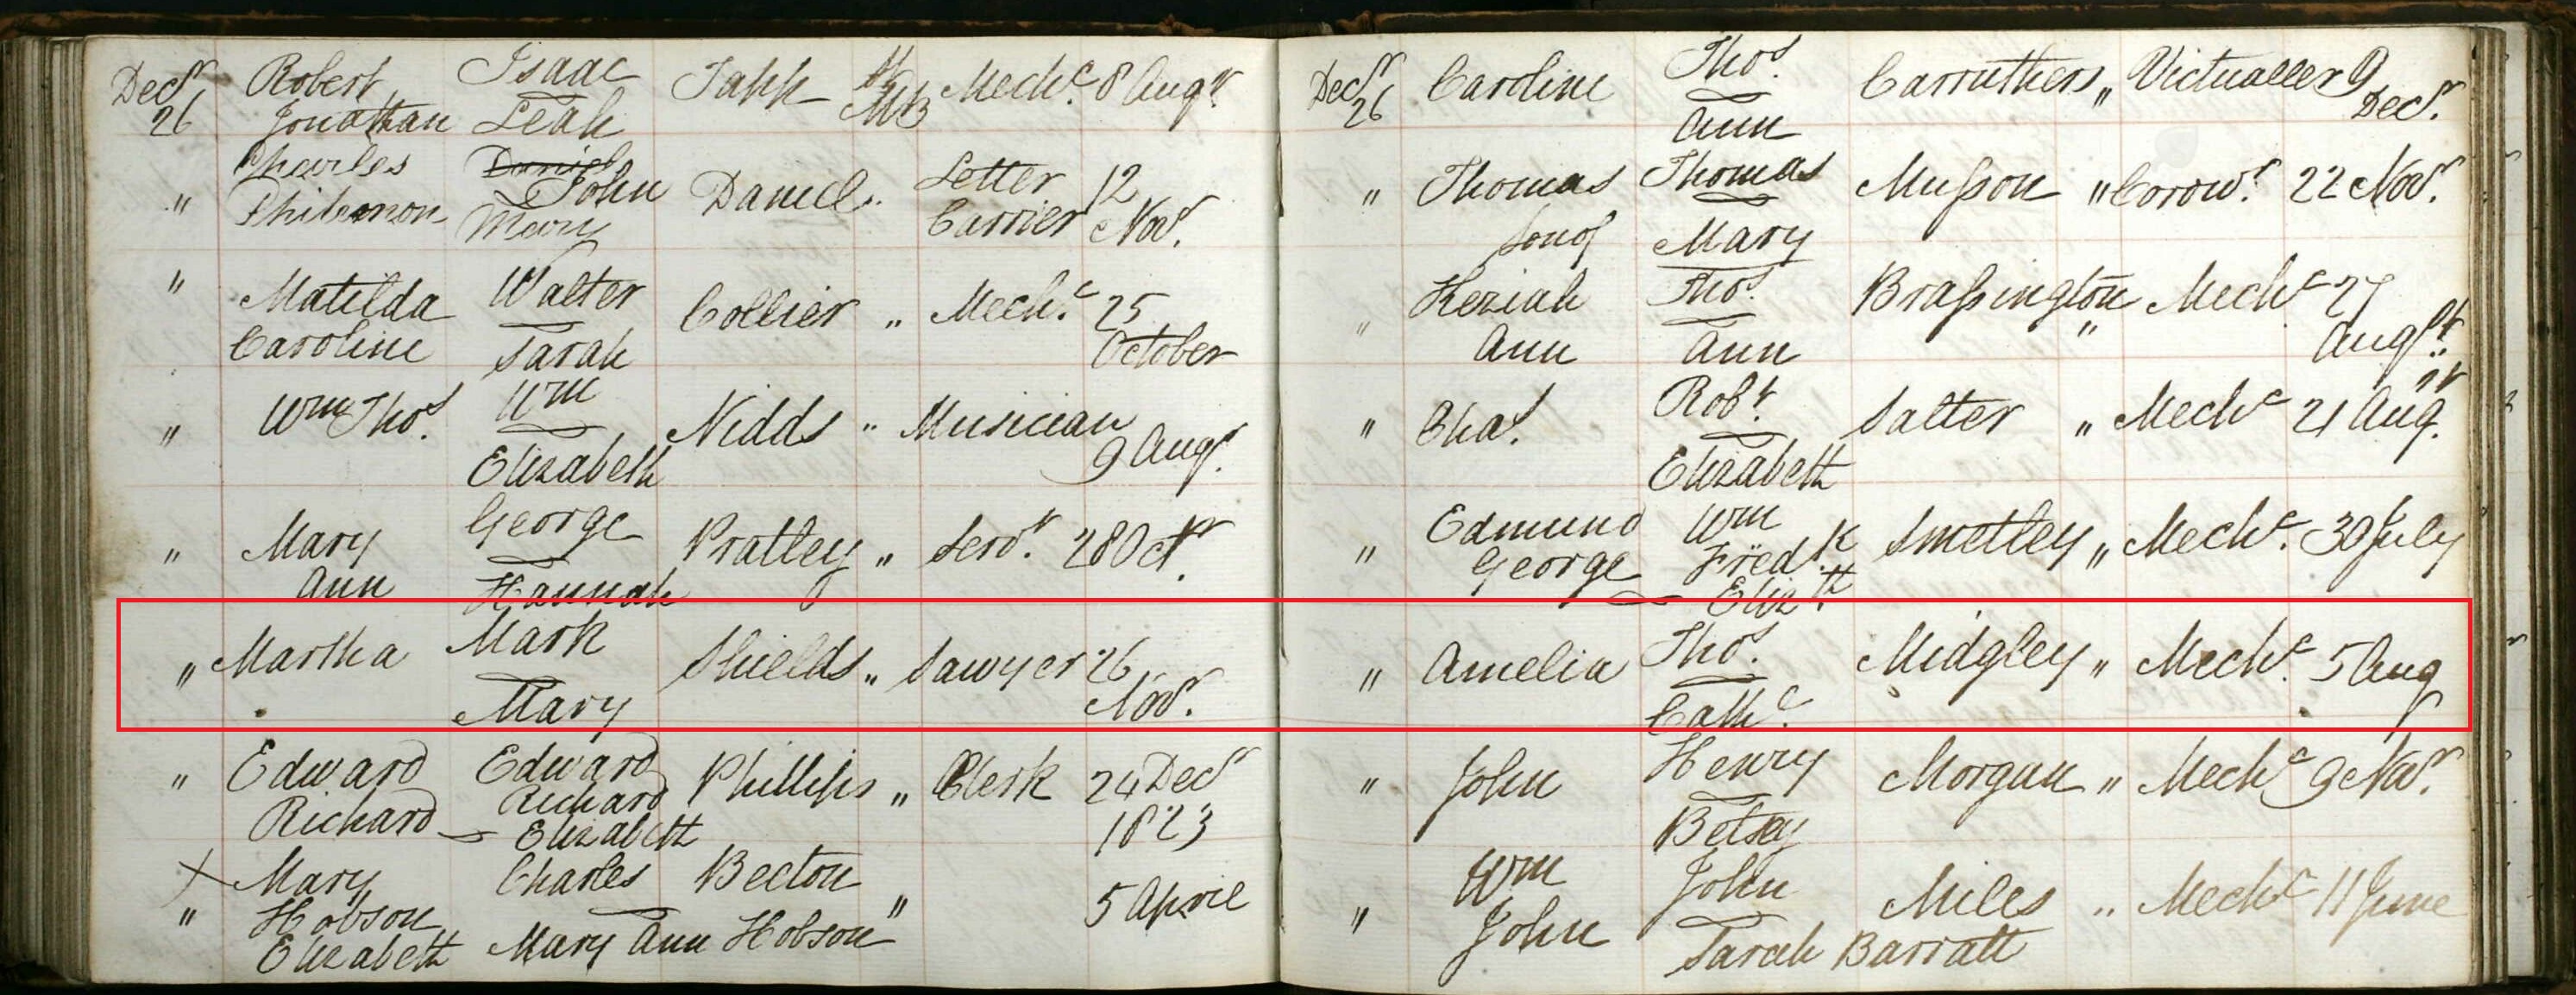 Decr Robert Isaac Tapp St Mechc. 8 Augt.
26 Jonathan Leah MB
" Charles Daniel John Daniel Letter 12
Philemon Mary Carrier Novr.
" Matilda Walter Collier " Mechc. 25
Caroline Sarah October
" Wm Thos. Wm Nidds " Musician
Elizabeth 9 Augt.
" Mary George Pratley " Servt. 28 Octr.
Ann Hannah
" Martha Mark Shields " Sawyer 26
Mary Novr.
" Edward Edward Phillips " Clerk 24 Decr
Richard Richard Elizabeth 1823
X Mary Charles Becton "
" Hobson 5 April
Elizabeth Mary Ann Hobson
Decr 26 Caroline Thos. Carruthers " Victualler 9
Ann Decr.
" Thomas Thomas Musson " Corowr. 22 Novr.
son of Mary
" Keziah Thos. Brassington " Mechc 27
Ann Ann Augst.
" Chas. Robt. Salter " Mechc 21 Augt.
Elizabeth
" Edmund Wm Smetley " Mechc. 30 July
George Fredk. Elizth
" Amelia Thos. Midgley " Mechc. 5 Aug
Cathe.
" John Henry Morgan " Mechc 9 Novr.
Betsey
" Wm John Miles " Mechc 11 June
John Sarah Barratt